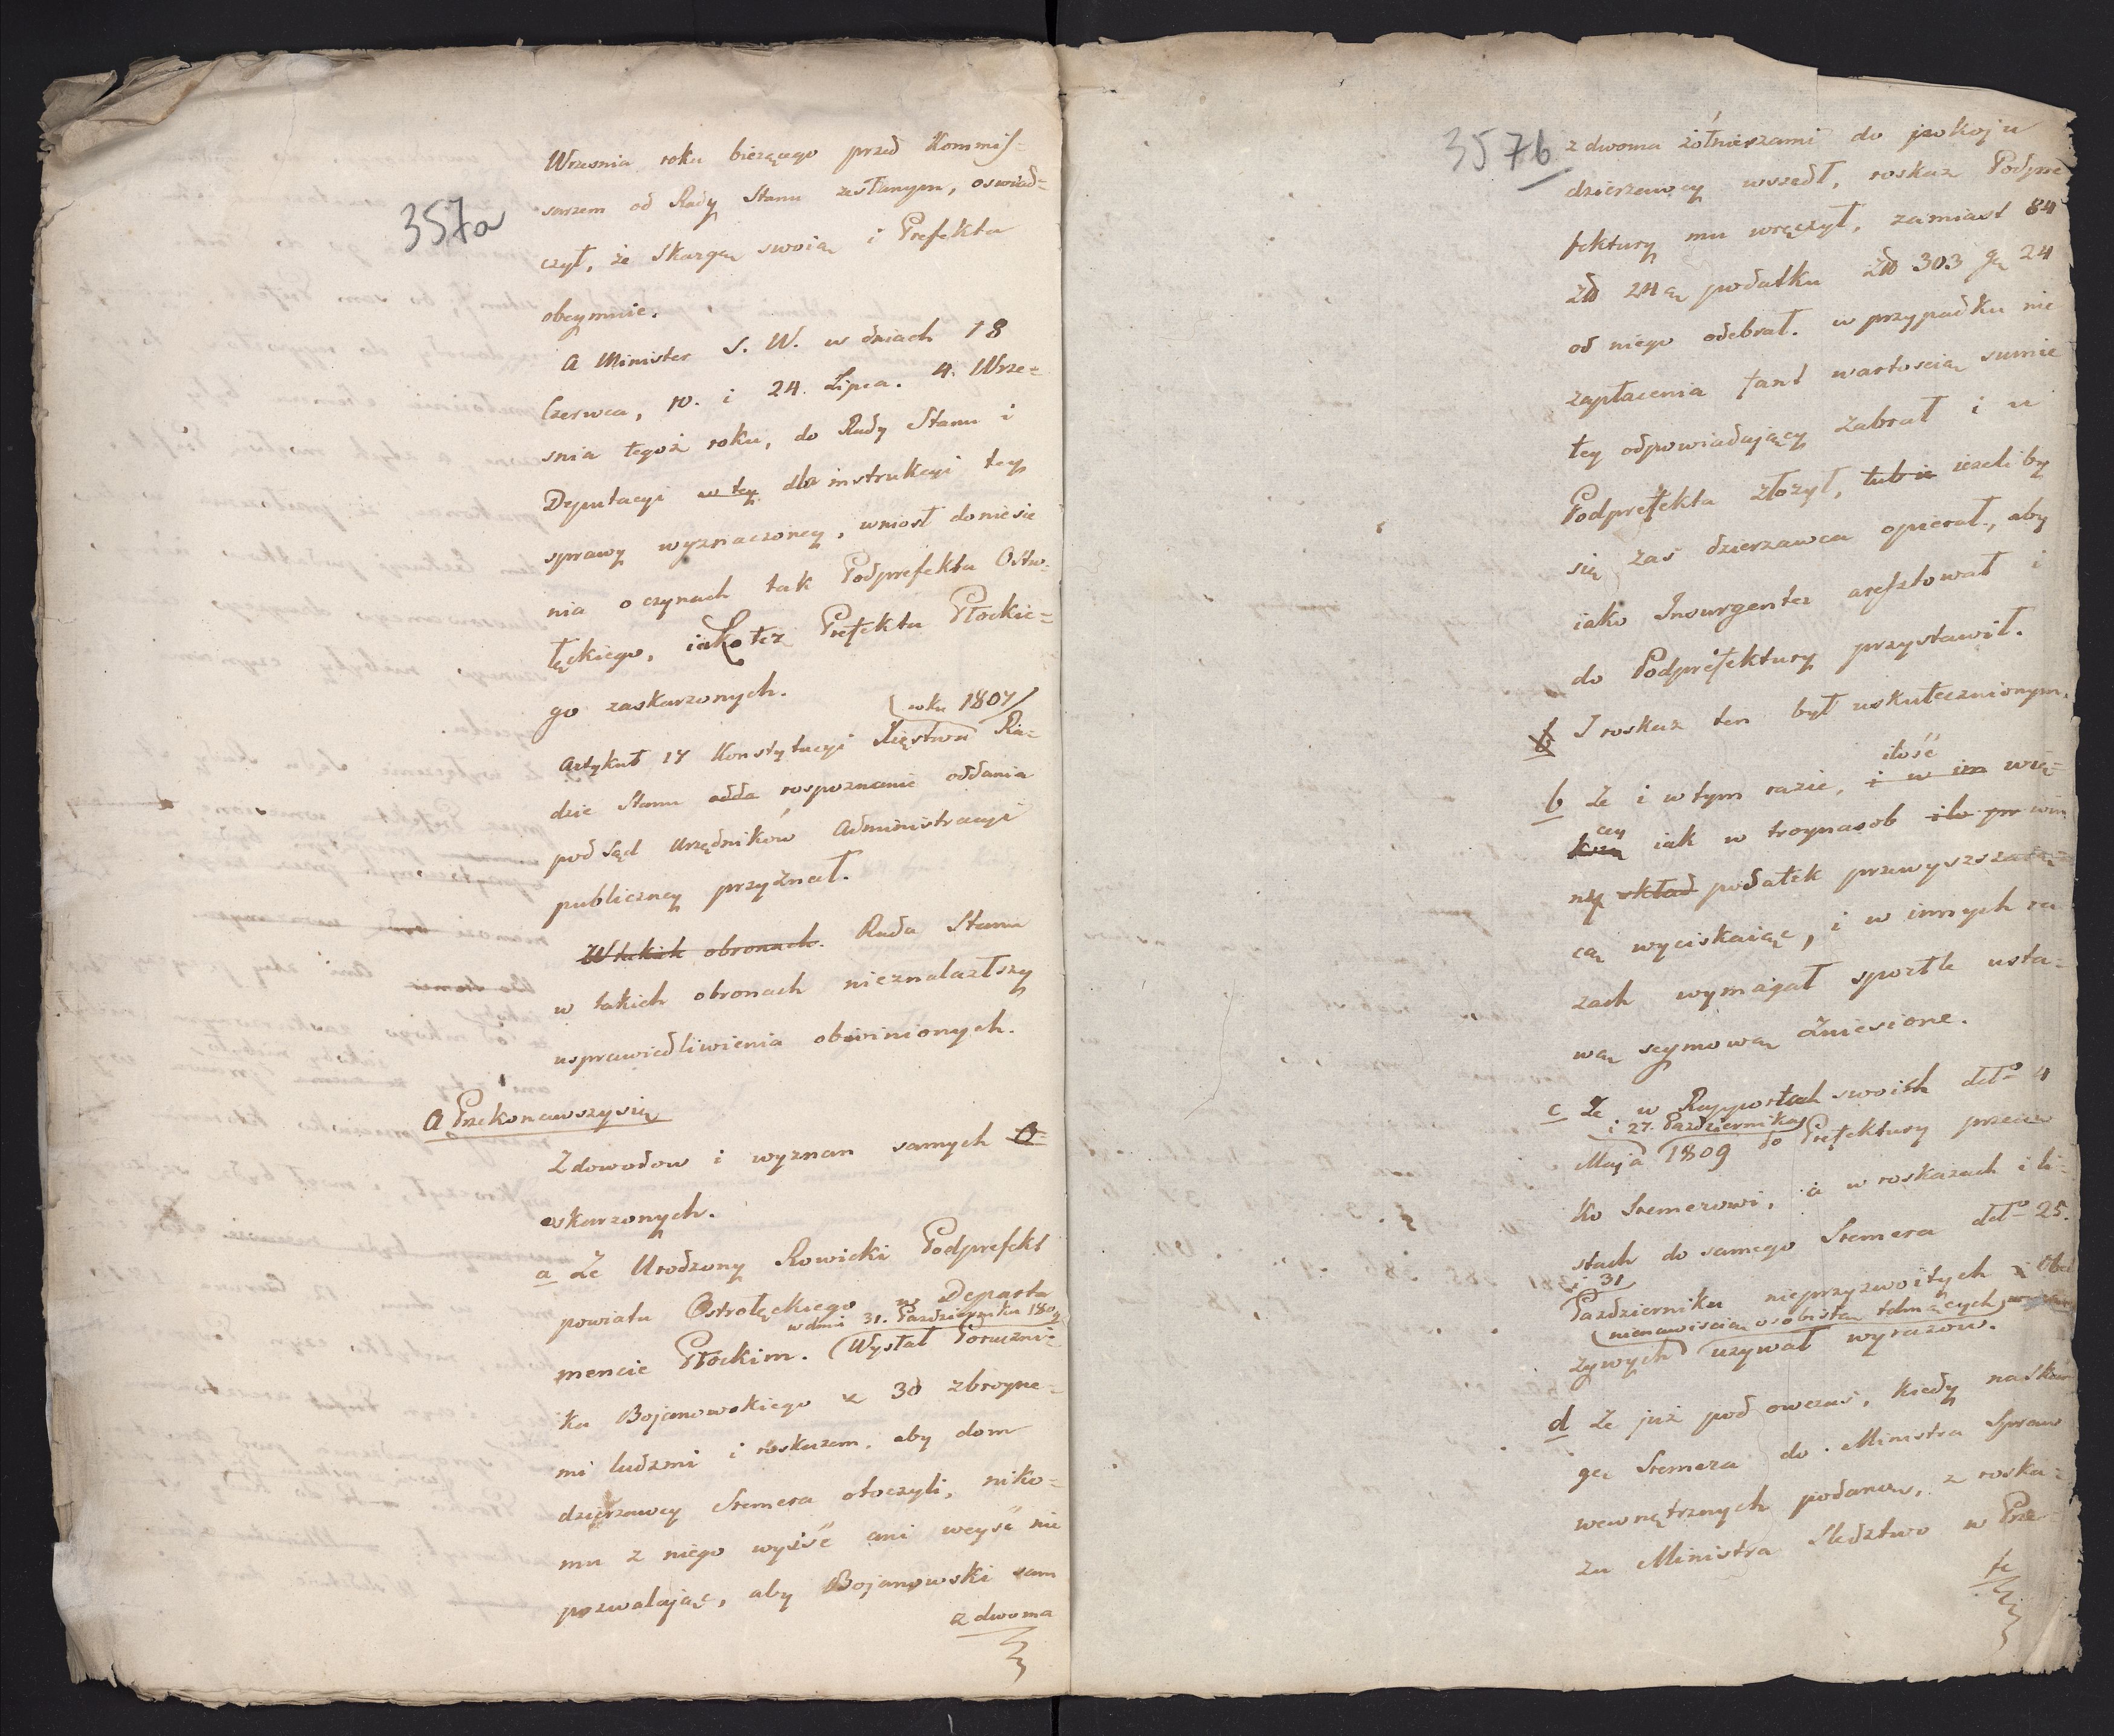 357a
Wrzesnia roku bieżącego przed Kommis-
sarzem od Rady Stanu zesłanym, oswiad=
czył, że Skargą swoią i Prefekta
obeymuie.
A Minister S. W. w dniach 18
Czerwca, 10. i 24. Lipca. 4. Wrze=
snia tegoż roku, do Rady Stanu i
Deputacyi w tey dla instrukcyi tey
sprawy wyznaczoney, wniosł doniesie
nia o czynach tak Podprefekta Ostro=
łęckiego, iako też Prefekta Płockie=
go zaskarzonych.
roku 1807
Artykuł 17 Konstytucyi Xięstwa Ra=
dzie Stanu odda rospoznanie oddania
pod Sąd Urzędników Administracyi
publiczney przyznał.
W takich obronach. Rada Stanu
w takich obronach nieznalazłszy
usprawiedliwienia obwinionych.
A Przekonawszy się
Z dowodow i wyznan samych O=
skarzonych.
a Ze Urodzony Rowicki Podprefekt
powiatu Ostrołęckiego w Departa
w dniu 31. Pazdziernika 1809
mencie Płockim. Wysłał Poruczni=
ka Bojanowskiego z 30 zbroyne=
mi ludzmi i roskazem, aby dom
dzierzawcy Stemera otoczyli, niko=
mu z niego wyiść ani weyść nie
pozwalając, aby Bojanowski sam
z dwoma
357b
z dwoma żołnierzami do pokoju
dzierzawcy wszedł, roskaz Podpre
fektury mu wręczył, zamiast 84
Zło 24 gr podatku Zło 303 gr 24
od niego odebrał. w przypadku nie
zapłacenia fant wartoscią sumie
tey odpowiadający zabrał i u
Podprefekta złożył, lub ie iezeliby
się zas dzierzawca opierał, aby
iako Insurgenta aresztował i
do Podprefektury przystawił.
b I roskaz ten był uskutecznionym.
ilość
b Ze i w tym razie, i w im wię=
cey
kszą iak w troynasob ilo pr win
ny skład podatek przewyszsza=
cą wyciskaiąc, i w innych ra
zach wymagał sportle usta=
wą seymową zniesione.
c Ze w Rapportach swoich dtto 4
i 27. Pazdziernika
Maja 1809 do Prefektury przeciw
ko Stemerowi, a w roskazach i li=
stach do samego Stemera dtto 25.
i 31
Pazdziernika nieprzyzwoitych i Obel
nienawiscią osobistą tchnących
zywych uzywał wyrazow.
d Ze już pod owczas, kiedy na Skar
gę Stemera do Ministra Spraw
wewnętrznych podaną, z roska=
zu Ministra Sledztwo w Pre=
fe